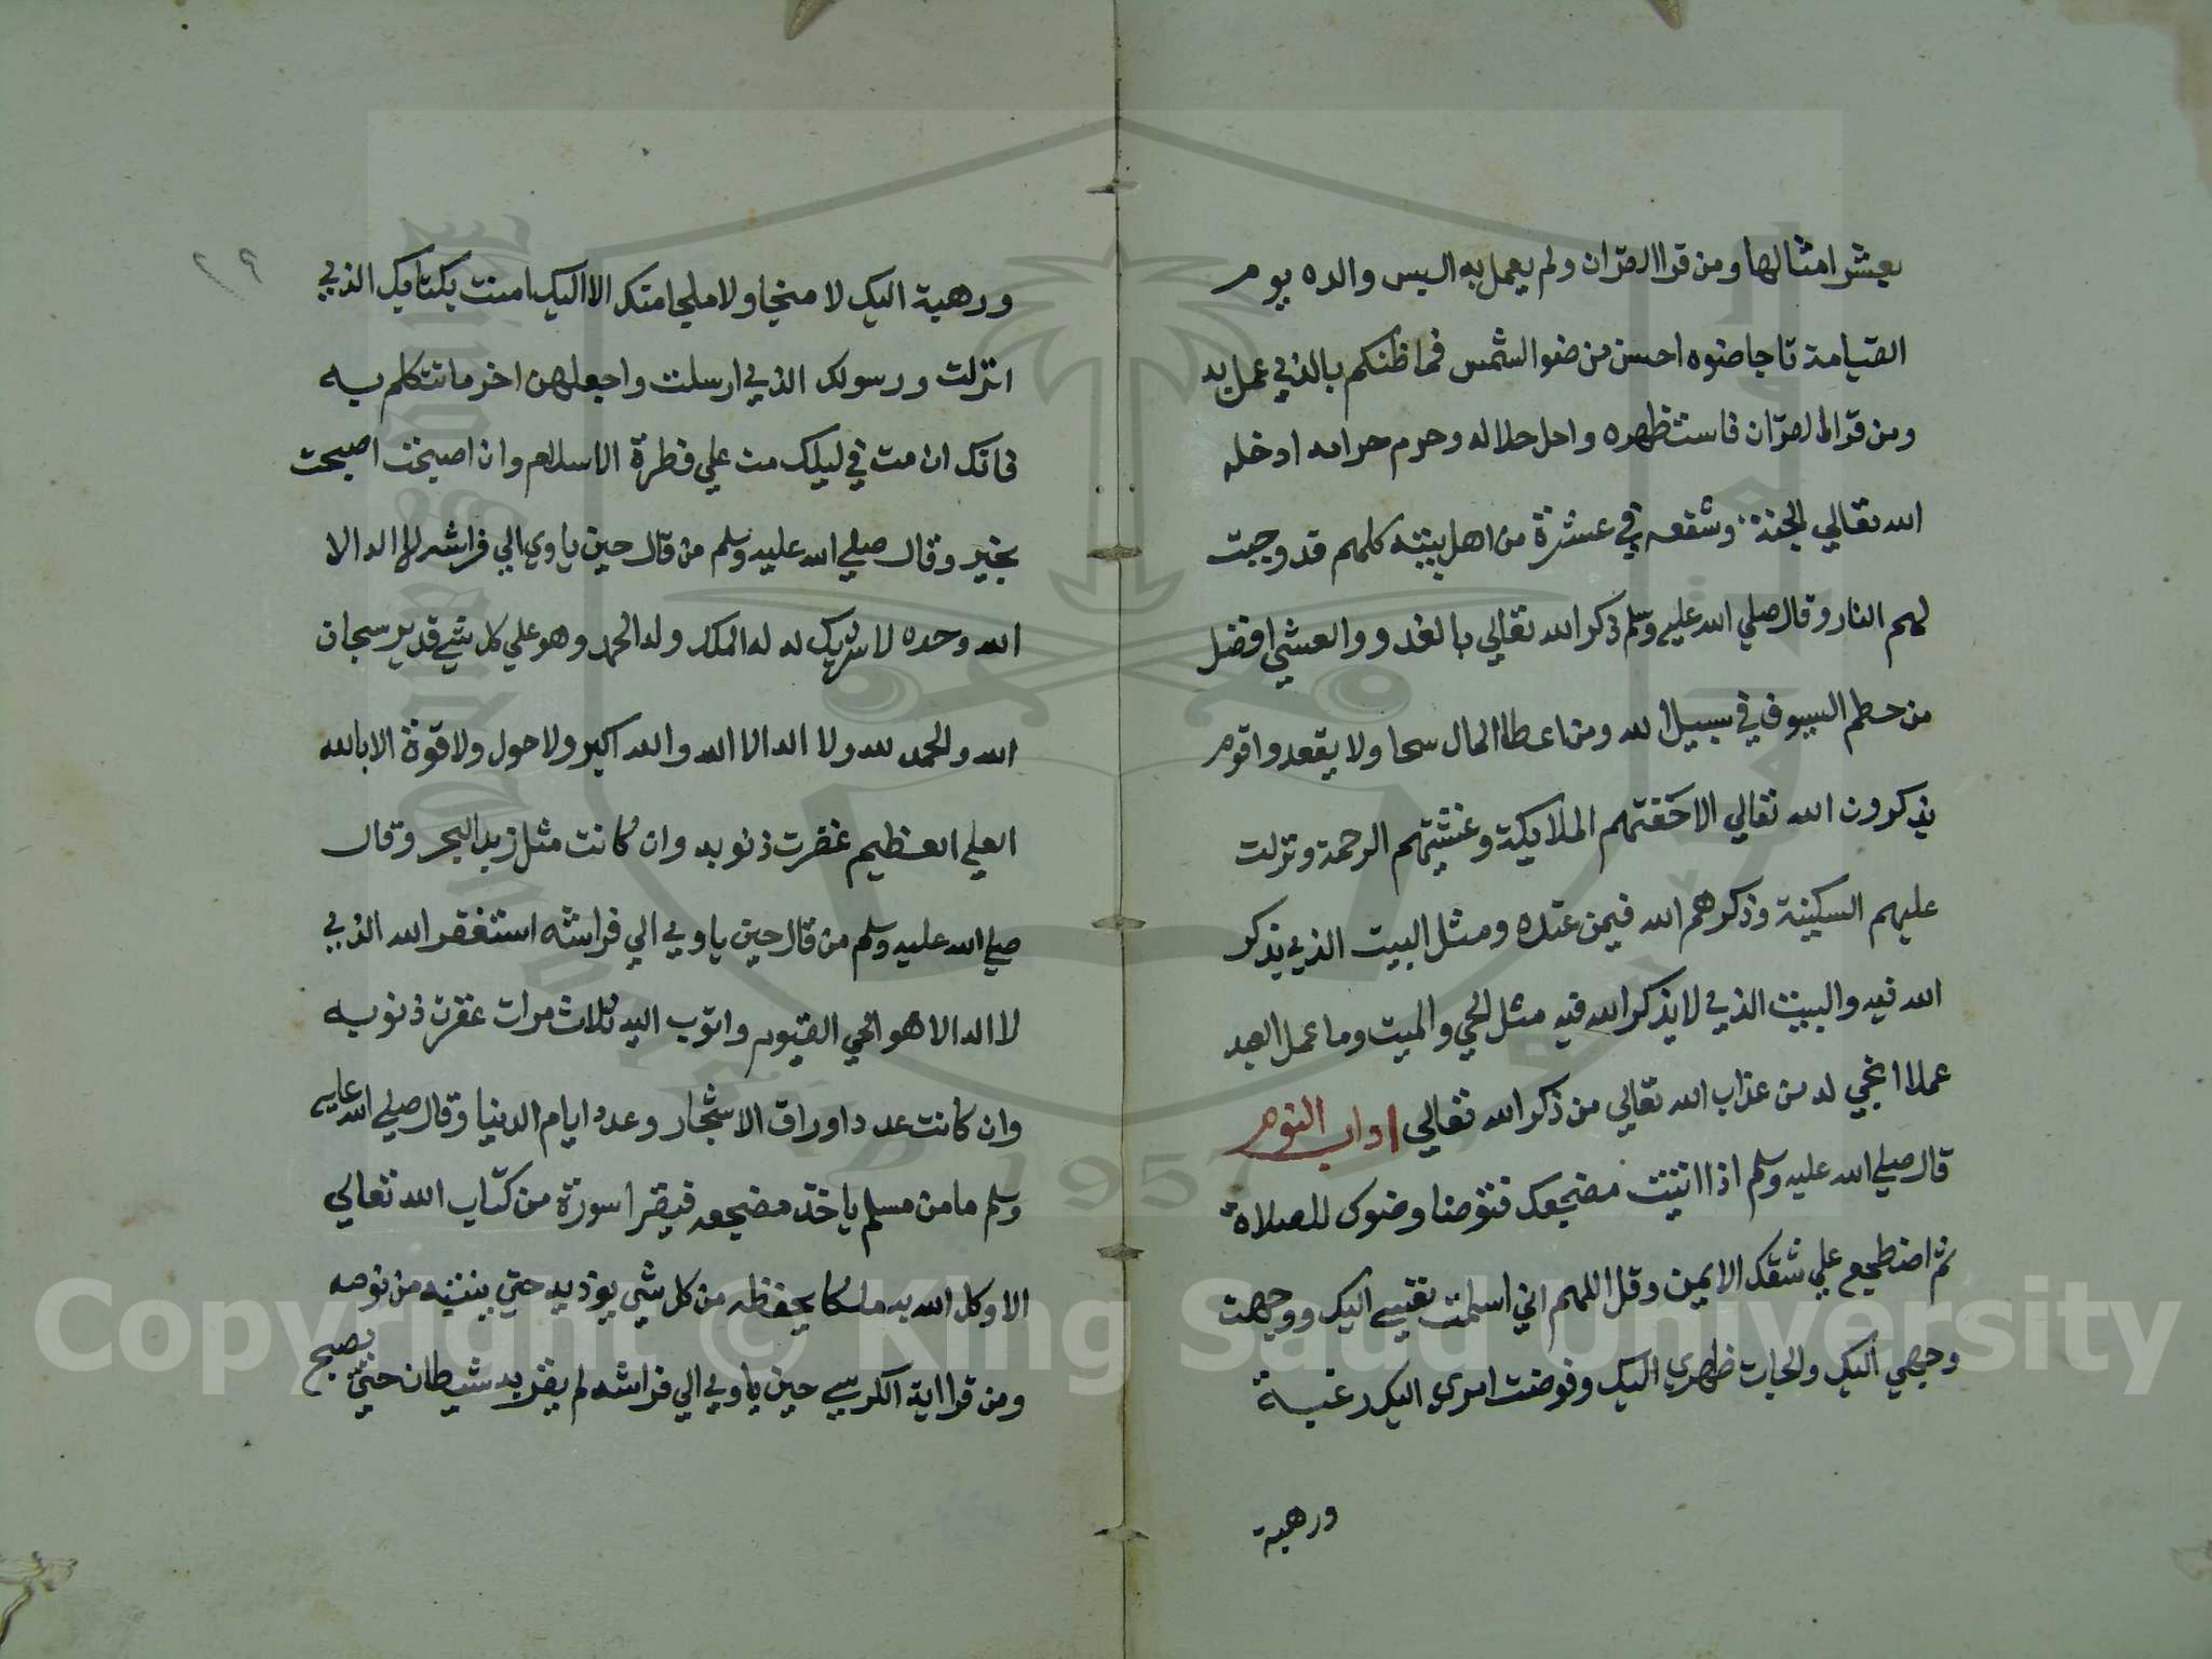 بعشر امثالها ومن قرا القران ولم يعمل به البس والده يوم
القيامة تاجا ضوه احسن من ضو الشمس فما ظنكم بالذي عمل به
ومن قرا القران فاستظهره واحل حلاله وحرم حرامه ادخله
الله تعالي الجنة وشفعه في عشرة من اهل بيته كلهم قد وجبت
لهم النار وقال صلي الله عليه وسلم ذكر الله تعالي بالغدو والعشي افضل
من حطم السيوف في سبيل الله ومن اعطا المال سحا ولا يقعد واقوم
يذكرون الله تعالي الا حفتهم الملايكة وغشيتهم الرحمة ونزلت
عليهم السكينة وذكرهم الله فيمن عنده ومثل البيت الذي يذكر
الله فيه والبيت الذي لا يذكر الله فيه مثل الحي والميت وما عمل العبد
عملا انجي له من عذاب الله تعالي من ذكر الله تعالي اداب النوم
قال صلي الله عليه وسلم اذا اتيت مضجعك فتوضا وضوك للصلاة
ثم اضطجع علي شقك الايمن وقل اللهم اني اسلمت نفسي اليك ووجهت
وجهي اليك والجات ظهري اليك وفوضت امري اليك رغبة
ورهبة
٢٩
ورهبة اليك لا منجا ولا ملجا منك الا اليك امنت بكتابك الذي
انزلت ورسولك الذي ارسلت واجعلهن اخر ما تتكلم به
فانك ان مت في ليلك مت علي فطرة الاسلام وان اصبحت اصبحت
بخير وقال صلي الله عليه وسلم من قال حين ياوي الي فراشه لا اله الا
الله وحده لا شريك له له الملك وله الحمد وهو علي كل شي قدير سبحان
الله والحمد لله ولا اله الا الله والله اكبر ولا حول ولا قوة الا بالله
العلي العظيم غفرت ذنوبه وان كانت مثل زبد البحر وقال
صلي الله عليه وسلم من قال حين ياوي الي فراشه استغفر الله الذي
لا اله الا هو الحي القيوم واتوب اليه ثلاث مرات غفرت ذنوبه
وان كانت عدد اوراق الاشجار وعدد ايام الدنيا وقال صلي الله عليه
وسلم ما من مسلم ياخذ مضجعه فيقرا سورة من كتاب الله تعالي
الا وكل الله به ملكا يحفظه من كل شي يوذيه حتي ينتبه من نومه
ومن قرا اية الكرسي حين ياوي الي فراشه لم يقربه شيطان حتي يصبح
Copyright © King Saud University
1957